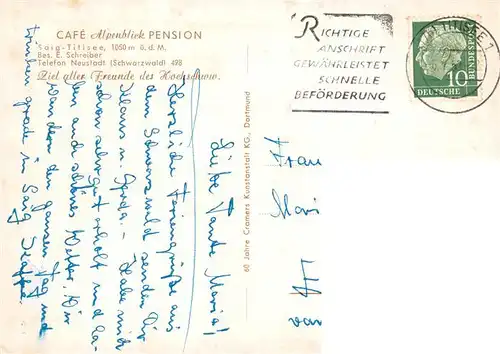 CAFÉ Alpenblick PENSION
Saig-Titisee, 1050 m ü. d. M.
Bes. E. Schreiber
Telefon Neustadt (Schwarzwald) 498
Ziel aller Freunde des Hochschwzw.
RICHTIGE
ANSCHRIFT
GEWÄHRLEISTET
SCHNELLE
BEFÖRDERUNG
TITISEE
10
DEUTSCHE
BUNDESPOST
60 Jahre Cramers Kunstanstalt KG., Dortmund
Liebe Tante Maria!
Herzliche Feriengrüße aus
dem Schwarzwald senden Dir
Klaus u. Habe mich
schon sehr gut erholt und ha-
ben auch schönes Wetter. Wir
wandern den ganzen Tag und
trinken grade in Saig Kaffee.
Frau
Mari